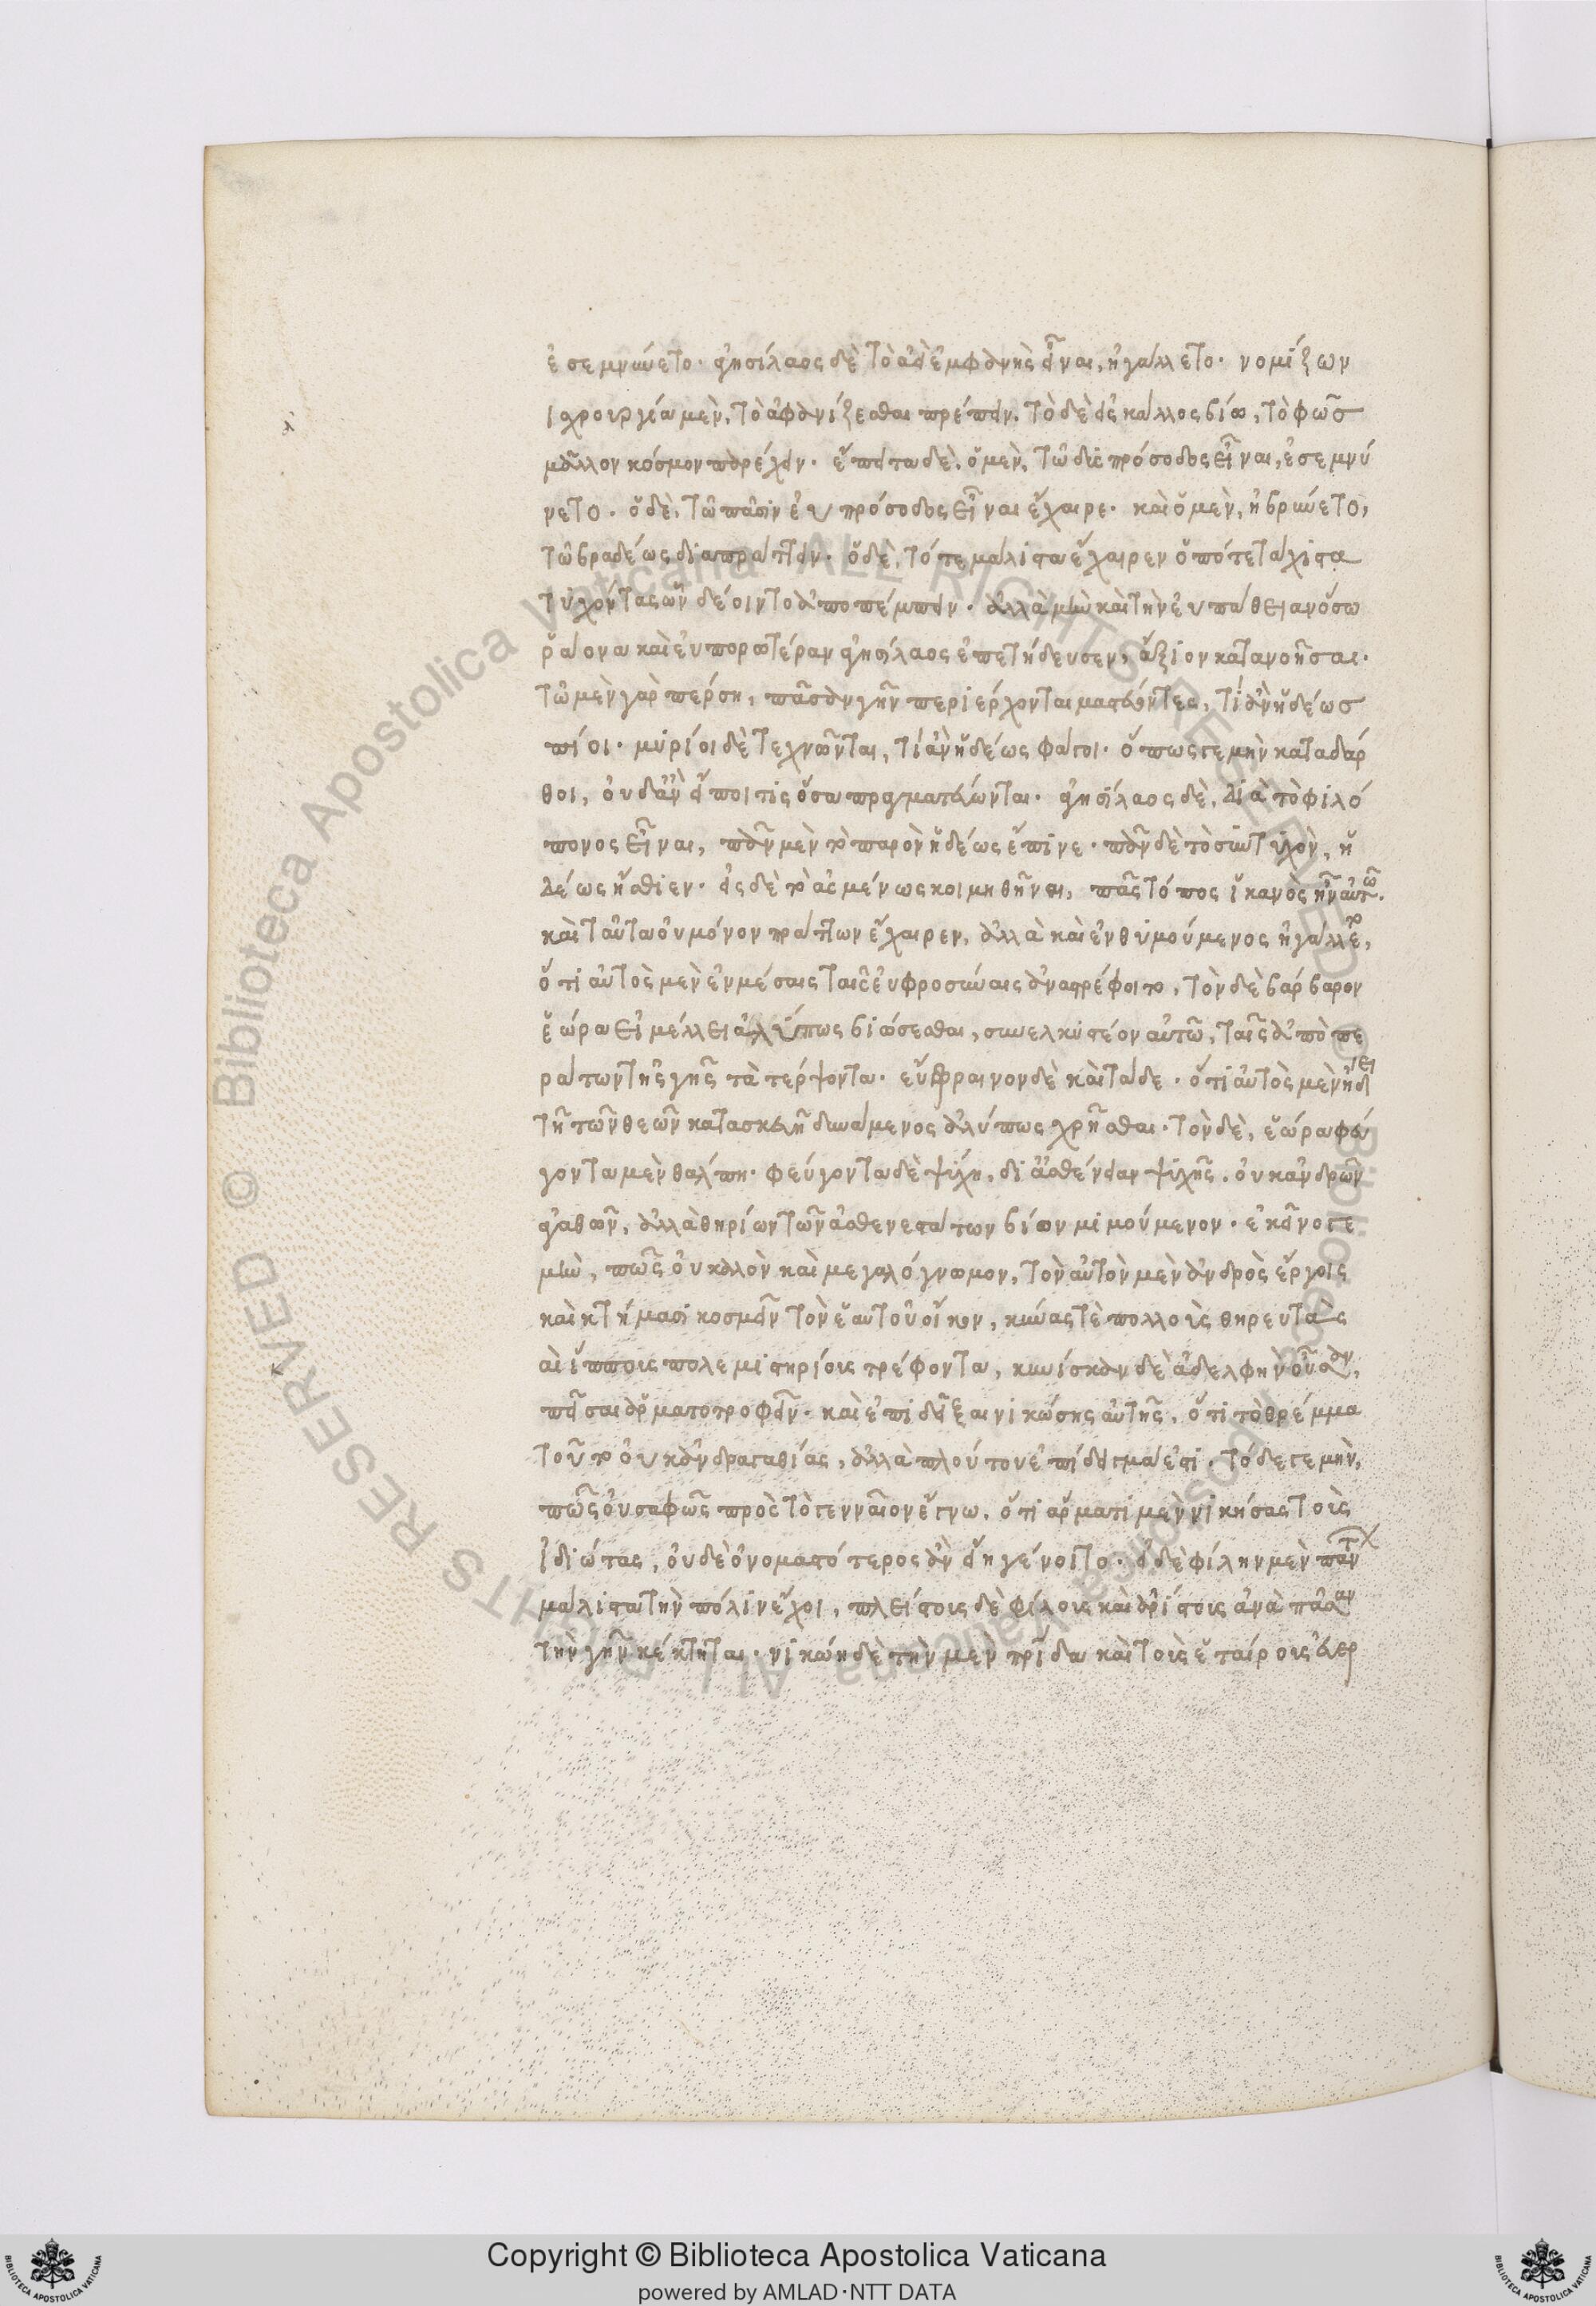 ἐσεμνύνετο· ἀγησίλαος δὲ τὸ ἀεὶ ἐμφανὴς εἶναι, ἠγάλλετο· νομίζων
ἰχρουργία μὲν, τὸ ἀφανίζεσθαι πρέπειν. τὸ δὲ εἰς κάλλος βίω, τὸ φῶσ
μᾶλλον κόσμον παρέχειν· ἔπειτα δὲ, ὁ μὲν, τῶ δυσπρόσοδος εἶναι, ἐσεμνύ
νετο. ὁ δὲ, τῶ πᾶσιν εὐπρόσοδος εἶναι ἔχαιρε· καὶ ὁ μὲν, ἡβρύνετο,
τῶ βραδέως διαπράττειν· ὁ δὲ, τότε μάλιστα ἔχαιρεν ὁπότε τάχιστα
τυχόντας ὧν δέοιντο ἀποπέμπειν· ἀλλὰ μὴν καὶ τὴν εὐπάθειαν ὅσω
ῥάονα καὶ εὐπορωτέραν ἀγησίλαος ἐπετήδευσεν, ἄξιον κατανοῆσαι.
τῶ μὲν γὰρ πέρση, πᾶσαν γῆν περιέρχονται μαστεύοντες, τί ἂν ἡδέωσ
πίοι· μύριοι δὲ τεχνῶνται, τί ἂν ἡδέως φάγοι· ὅπως γε μὴν καταδάρ
θοι, οὐδ' ἂν εἴποι τὶς ὅσα πραγματεύονται· ἀγησίλαος δὲ, διὰ τὸ φιλό
πονος εἶναι, πᾶν μὲν τὸ παρὸν ἡδέως ἔπινε· πᾶν δὲ τὸ συντυχὸν, ἡ
δέως ἤσθιεν· εἰς δὲ τὸ ἀσμένως κοιμηθῆναι, πᾶς τόπος ἱκανὸς ἦν αὐτῶ.
καὶ ταῦτα οὐ μόνον πράττων ἔχαιρεν, ἀλλὰ καὶ ἐνθυμούμενος ἠγάλλετο,
ὅτι αὐτὸς μὲν ἐν μέσαις ταῖς εὐφροσύναις ἀναστρέφοιτο, τὸν δὲ βάρβαρον
ἑώρα εἰ μέλλει ἀλύπως βιώσεσθαι, συνελκυστέον αὐτῶ, ταῖς ἀπὸ πε
ράτων τῆς γῆς τὰ τέρψοντα· εὔφραινον δὲ καὶ τάδε· ὅτι αὐτὸς μὲν ἤδει
τῆ τῶν θεῶν κατασκευῆ δυνάμενος ἀλύπως χρῆσθαι· τὸν δὲ, ἑώρα φεύ
γοντα μὲν θάλπη· φεύγοντα δὲ ψύχη, δι' ἀσθένειαν ψυχῆς. οὐκ ἀνδρῶν
ἀγαθῶν, ἀλλὰ θηρίων τῶν ἀσθενεστάτων βίων μιμούμενον· ἐκεῖνο γε
μὴν, πῶς οὐ καλὸν καὶ μεγαλόγνωμον, τὸν αὐτὸν μὲν ἀνδρὸς ἔργοις
καὶ κτήμασι κοσμεῖν τὸν ἑαυτοῦ οἶκον, κύνας τὲ πολλοὺς θηρευτὰς
αἱ ἵππους πολεμιστηρίους τρέφοντα, κυνίσκαν δὲ ἀδελφὴν οὖσαν,
πεῖσαι ἁρματοτροφεῖν· καὶ ἐπιδεῖξαι νικώσης αὐτῆς, ὅτι τὸ θρέμμα
τοῦτο οὐκ ἀνδραγαθίας, ἀλλὰ πλούτου ἐπίδειγμα ἐστι· τόδε γε μὴν,
πῶς οὐ σαφῶς πρὸς τὸ γενναῖον ἔγνω, ὅτι ἅρματι μὲν νικήσας τοὺς
ἰδιώτας, οὐδὲ ὀνομαστότερος ἂν εἴη γένοιτο· εἰ δὲ φίλην μὲν πάντ
μάλιστα τὴν πόλιν ἔχοι, πλείστους δὲ φίλους καὶ ἀρίστους ἀνὰ πᾶσαν
τὴν γῆν κέκτηται· νικώη δὲ τὴν μὲν πρίδα καὶ τοὺς ἑταίρους εὐερ
Copyright © Biblioteca Apostolica Vaticana
powered by AMLAD·NTT DATA